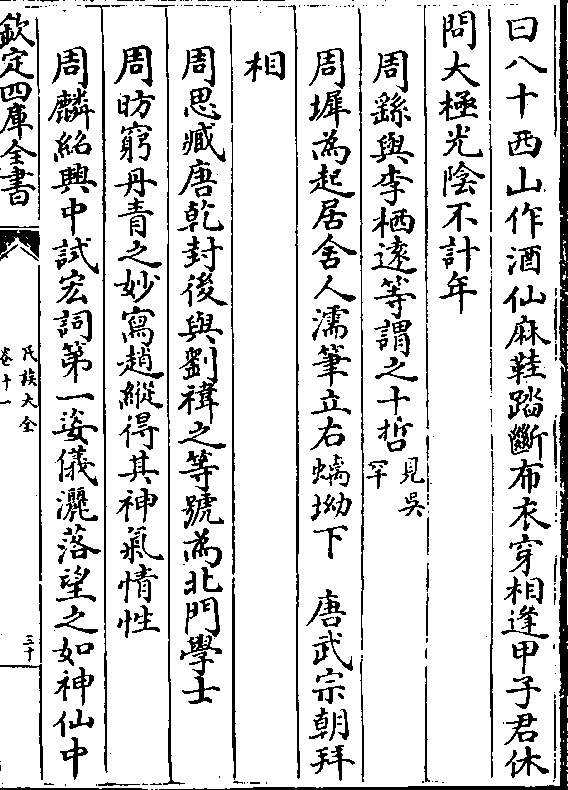 曰八十西山作酒仙麻鞋踏斷布衣穿相逢甲子君休
問大極光陰不計年
周繇與李栖遠等謂之十哲見吳罕
周墀為起居舍人濡筆立右螭坳下　唐武宗朝拜
相
周思臧唐乾封後與劉禕之等號為北門學士
周昉窮丹青之妙寫趙縱得其神氣情性
周麟紹興中試宏詞第一姿儀灑落望之如神仙中
欽定四庫全書
氏族大全
卷十一
三十